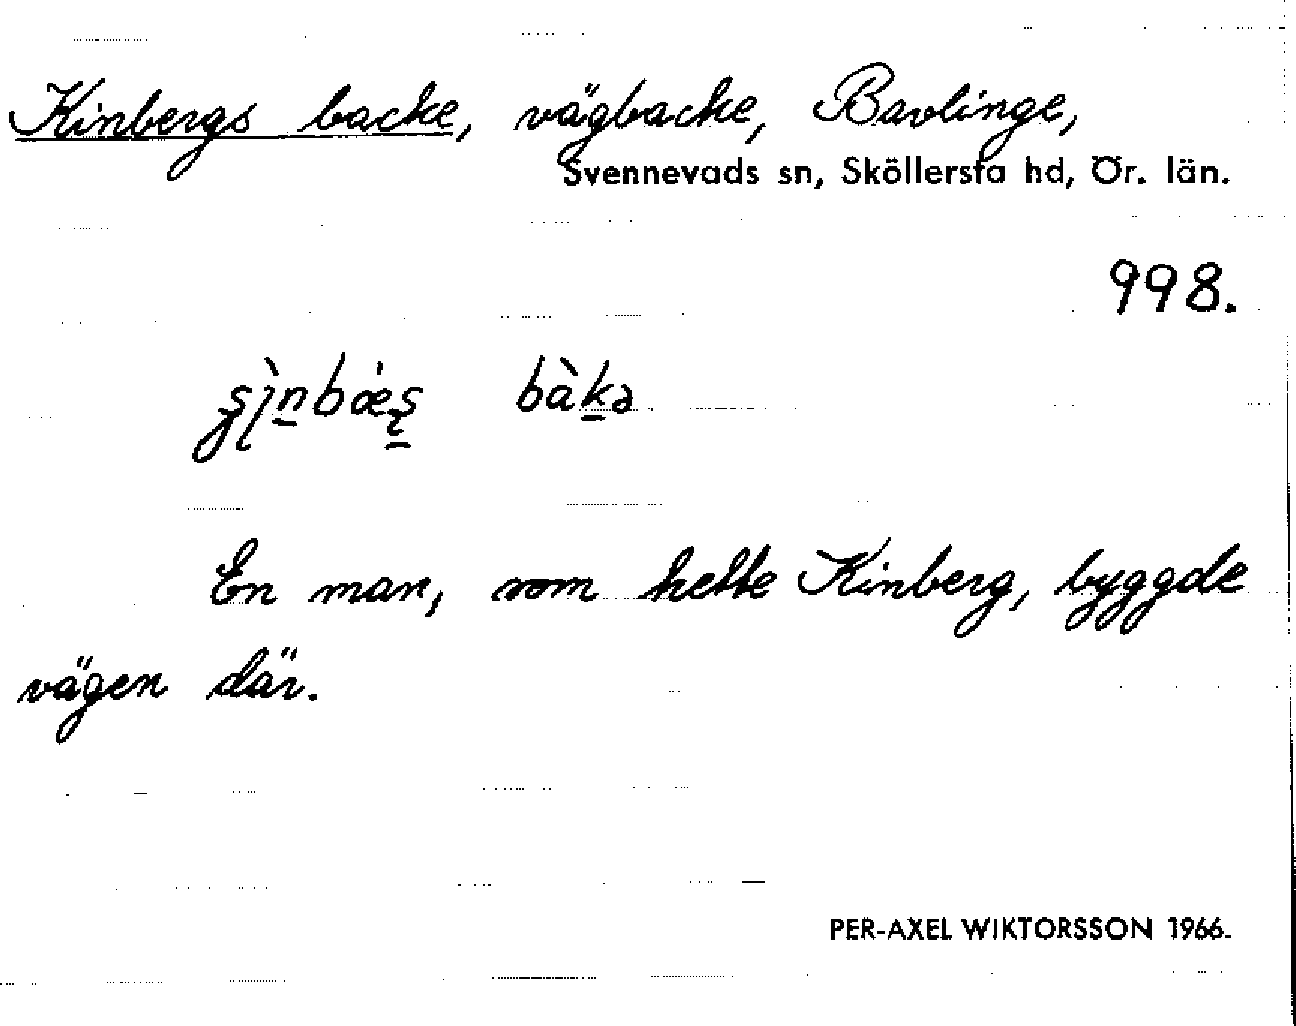 Kinbergs backe, vägbacke, Bavlinge,
Svennevads sn, Sköllersta hd, Ör. län.
998.
bàkə
En man, som hette Kinberg, byggde
vägen där.
PER-AXEL WIKTORSSON 1966.